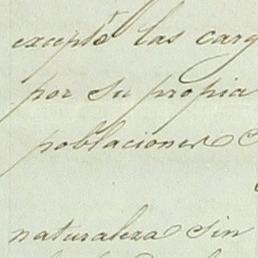 excepto las carg
por su propia
poblaciones
naturaleza sin